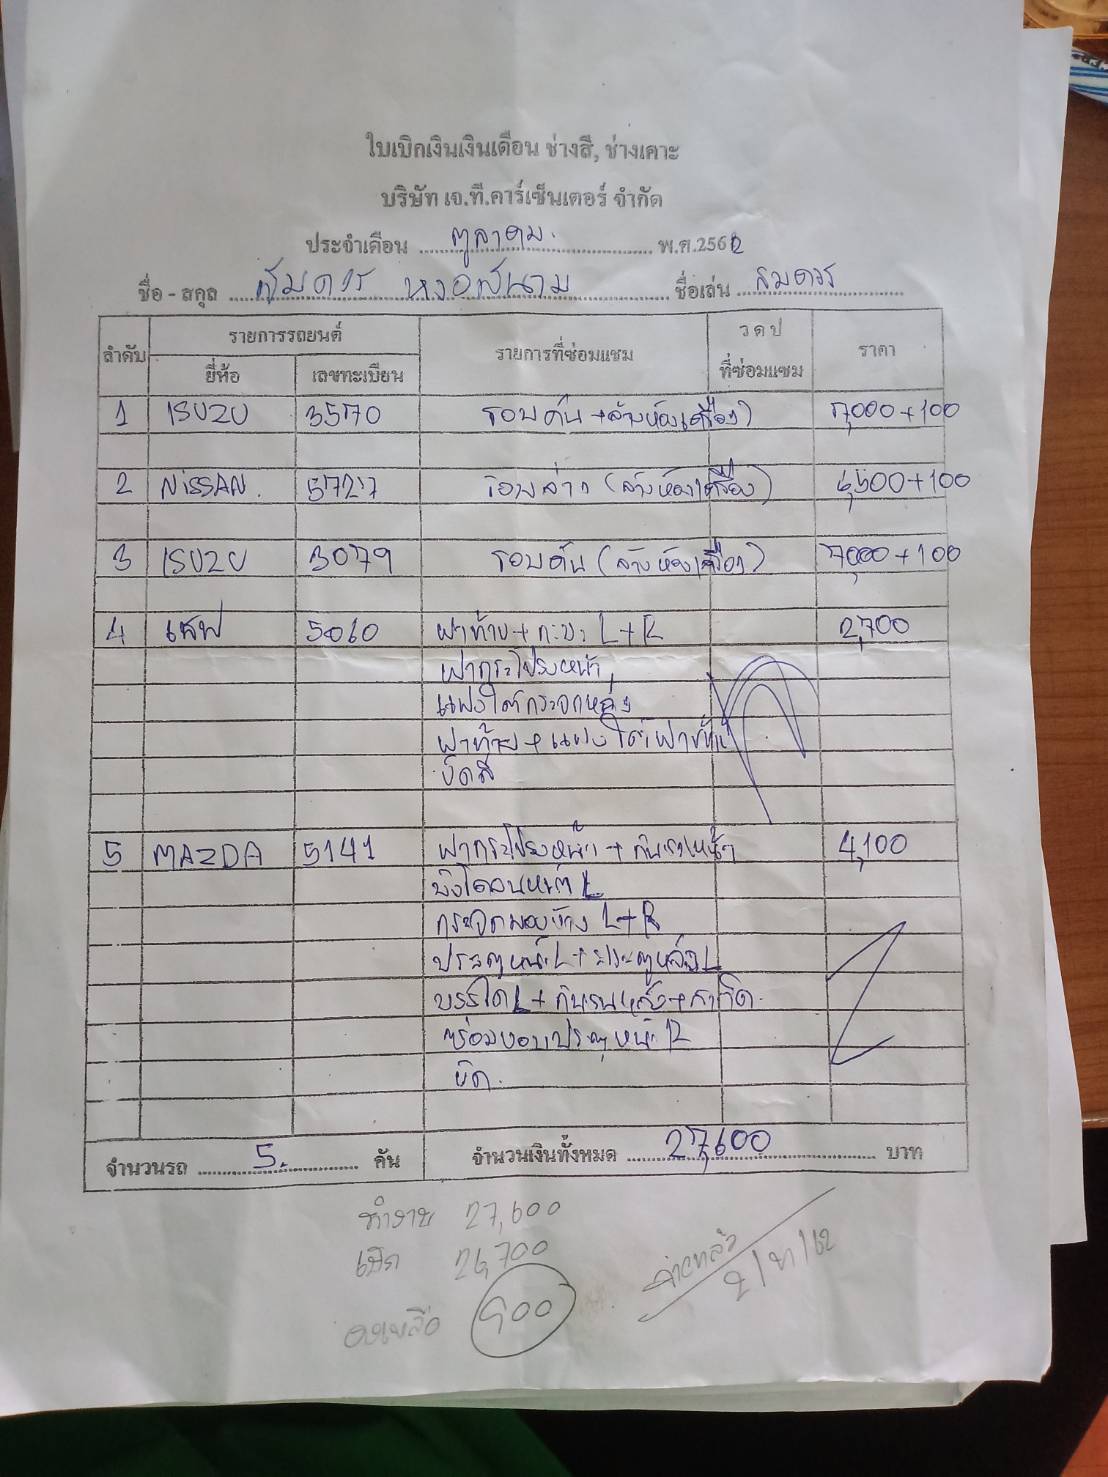 ใบเบิกเงินเงินเดือน ช่างสี, ช่างเคาะ
บริษัท เจ.ที.คาร์เซ็นเตอร์ จำกัด
ประจำเดือน ตุลาคม. พ.ศ.2562
ชื่อ - สกุล สมควร ชื่อเล่น สมควร
ลำดับ รายการรถยนต์ รายการที่ซ่อมแซม ว ด ป ราคา
ยี่ห้อ เลขทะเบียน ที่ซ่อมแซม
1 ISUZU 3570 รอบคัน +ล้างห้องเครื่อง) 7,000+100
2 NISSAN. 5727 รอบล่าง (ล้างห้องเครื่อง) 6,500+100
3 ISUZU 3079 รอบคัน (ล้างห้องเครื่อง) 7,000+100
4 เชฟ 5060 ฝาท้าย + กะบะ L+R 2,700
ฝากระโปรงหน้า
แผงใต้กระจกหลัง
ฝาท้าย + แผงใต้ฝาท้าย
ขัดสี
5 MAZDA 5141 ฝากระโปรงหน้า + กันชนหน้า 4,100
บังโคลนหน้า L
กระจกมองข้าง L+R
ประตูหน้า L + ประตูหลัง L
บรรได L + กันชนหลัง +
พร้อมขอบประตูหน้า R
ขัด.
จำนวนรถ 5. คัน จำนวนเงินทั้งหมด 27,600 บาท
ทำงาน 27,600
เบิก 26,700
คงเหลือ 900
จ่ายแล้ว